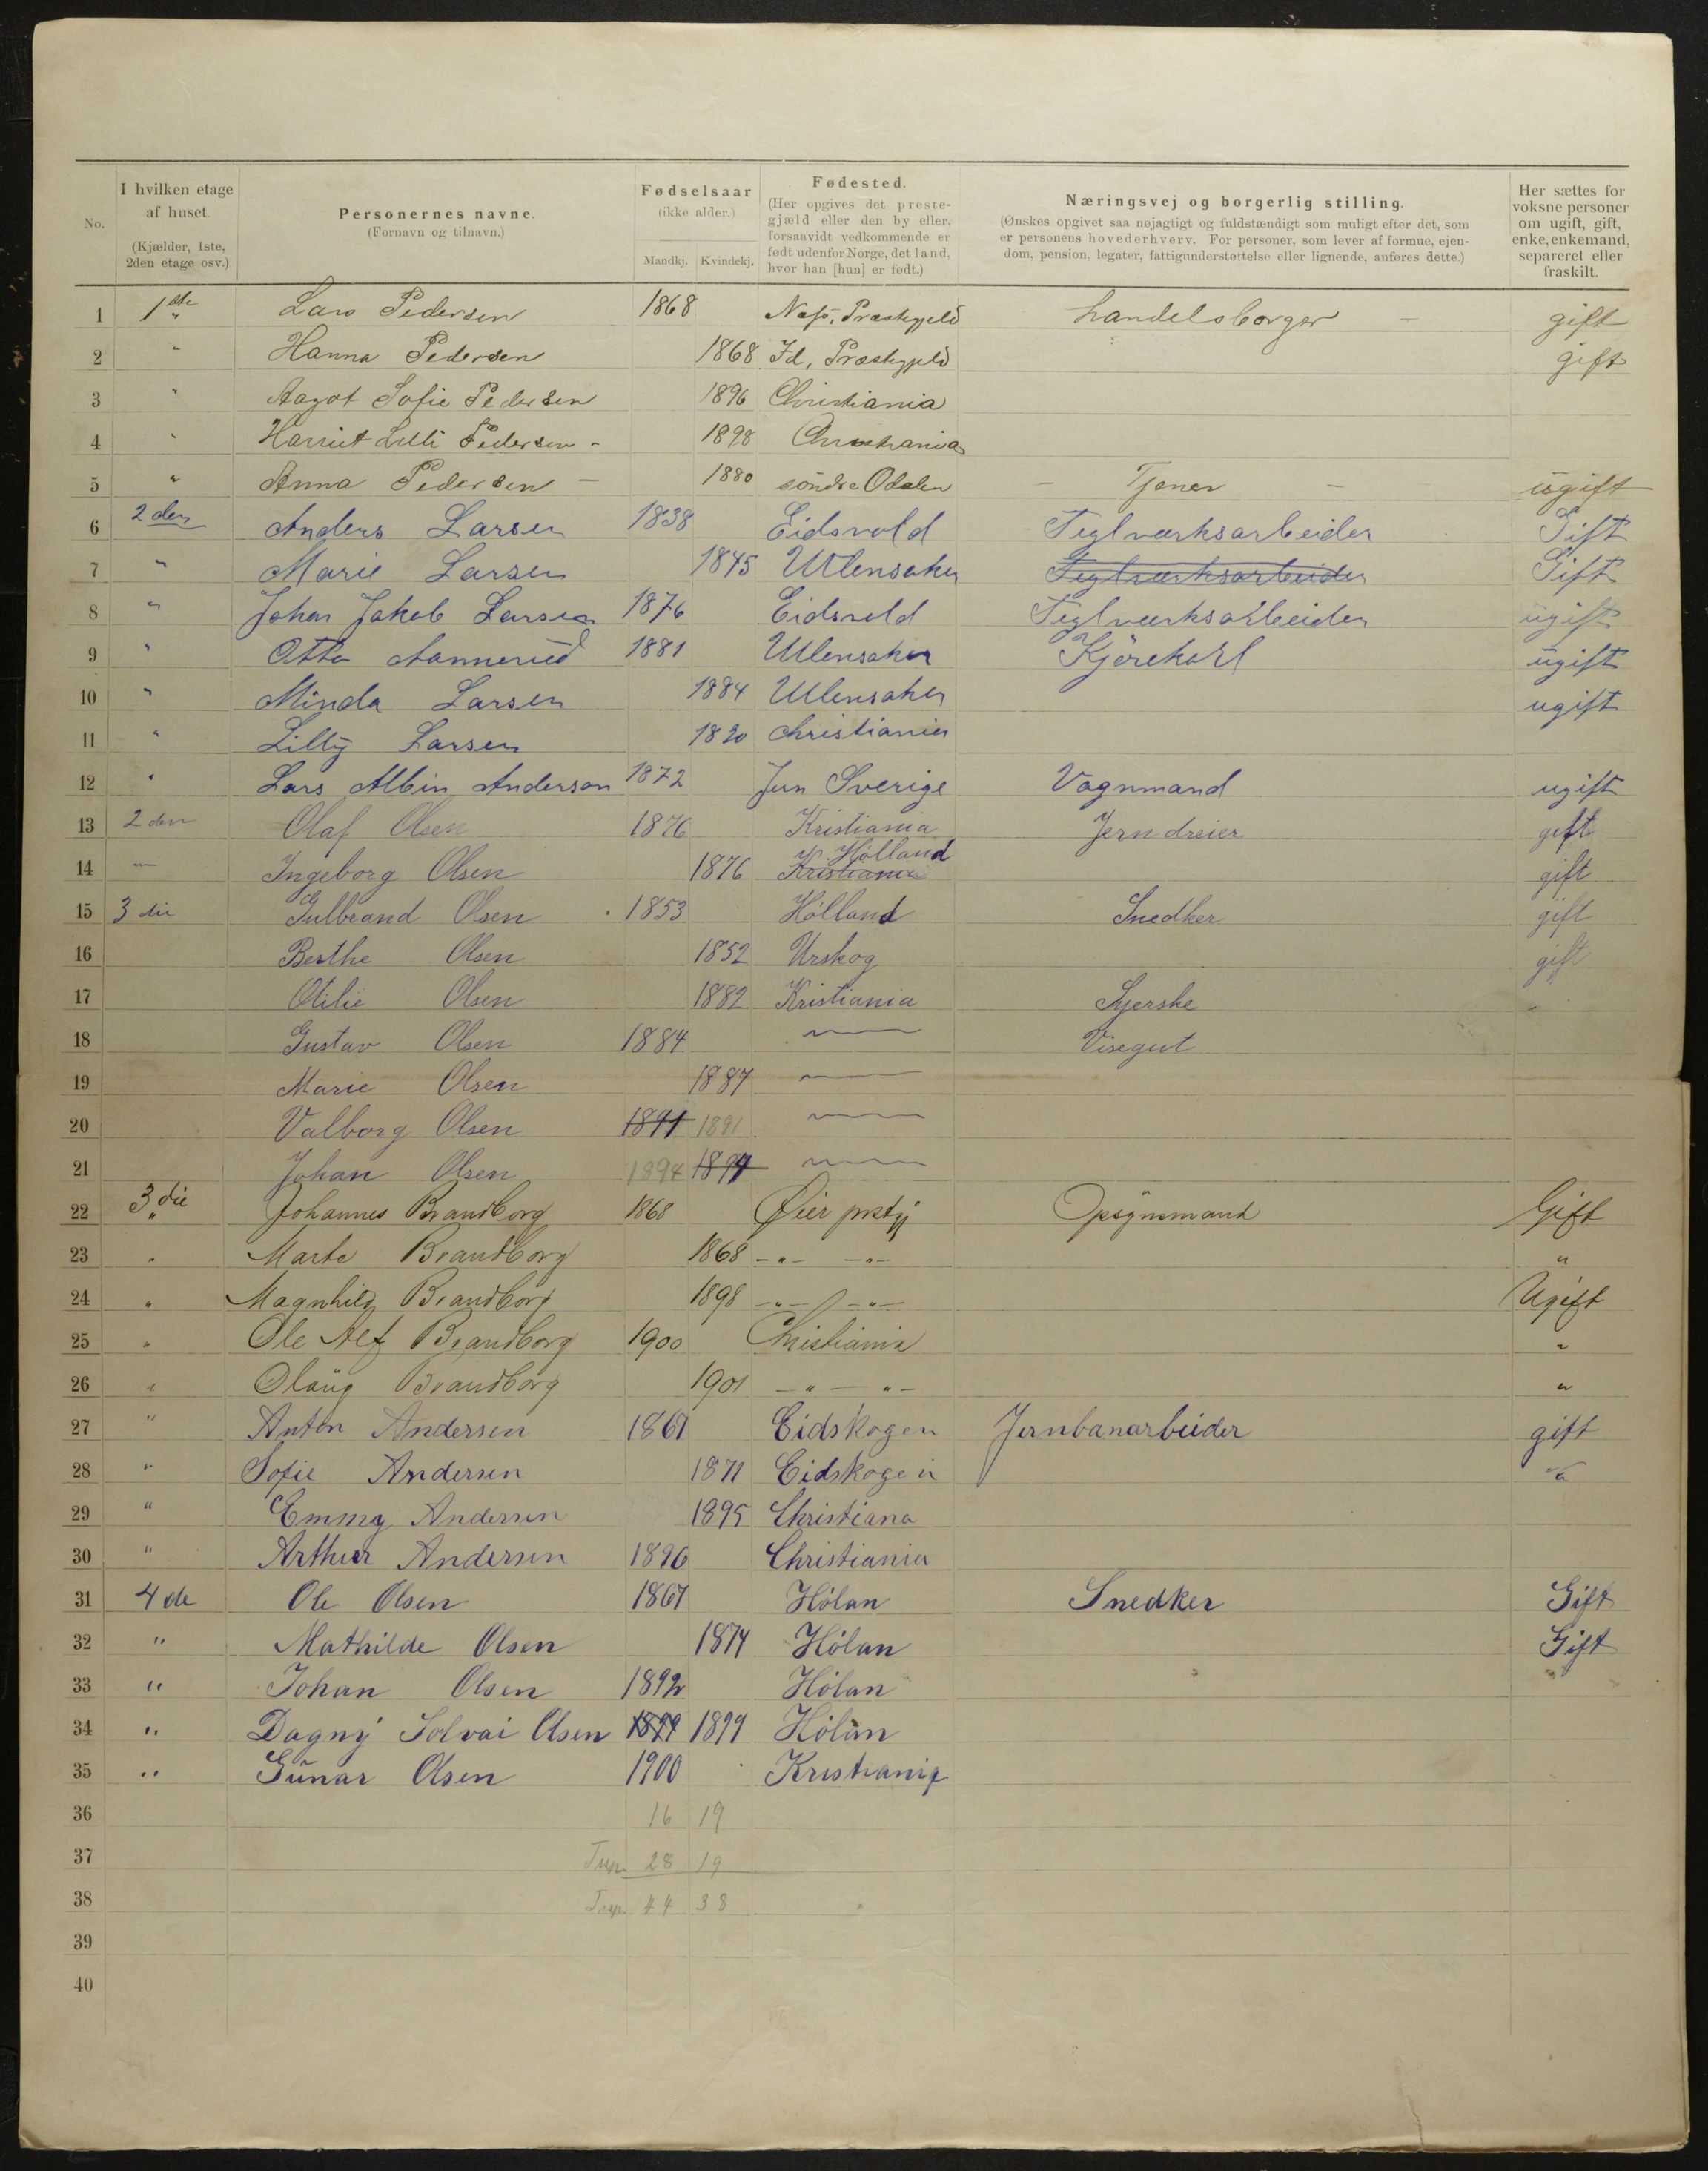 No.
I hvilken etage af huset.
(Kjælder, 1ste, 2den etage osv.)
Personernes navne.
(Fornavn og tilnavn.)
Fødselsaar
(ikke alder.)
Mandkj. Kvindekj.
Fødested.
(Her opgives det prestegjæld eller den by eller, forsaavidt vedkommende er født udenfor Norge, det land, hvor han [hun] er født.)
Næringsvej og borgerlig stilling.
(Ønskes opgivet saa nøjagtigt og fuldstændigt som muligt efter det, som er personens hovederhverv. For personer, som lever af formue, ejendom, pension, legater, fattigunderstøttelse eller lignende, anføres dette.)
Her sættes for voksne personer om ugift, gift, enke, enkemand, separeret eller fraskilt.
1 1ste Lars Pedersen 1868 Næs, Præstegjeld handelsborger – gift
2 " Hanna Pedersen 1868 Id, Præstegjeld gift
3 " Aagot Sofie Pedersen 1896 Christiania
4 " Harriet Lilli Pedersen - 1898 Christiania
5 " Anna Pedersen – 1880 söndre Odalen – Tjener – ugift
6 2den Anders Larsen 1838 Eidsvold Teglværksarbeider Gift
7 " Marie Larsen 1845 Ullensaker Teglværksarbeider Gift
8 " Johan Jakob Larsen 1876 Eidsvold Teglværksarbeider ugift
9 " Otto Aannerud 1881 Ullensaker Kjörekarl ugift
10 " Minda Larsen 1884 Ullensaker ugift
11 " Lilly Larsen 1890 Christiania
12 " Lars Albin Anderson 1872 Sverige Vognmand ugift
13 2den Olaf Olsen 1876 Kristiania Jerndreier gift
14 – Ingeborg Olsen 1876 Kristiania Hölland gift
15 3die Gulbrand Olsen 1853 Hölland Snedker gift
16 Berthe Olsen 1852 Urskog gift
17 Otilie Olsen 1882 Kristiania Syerske -
18 Gustav Olsen 1884 – Visegut
19 Marie Olsen 1887 –
20 Valborg Olsen 1891 1891 –
21 Johan Olsen 1894 1894 –
22 3die " Johannes Brandborg 1868 Øier prstgj Opsynsmand Gift
23 " Marte Brandborg 1868 -"- -"- "
24 " Magnhild Brandborg 1898 -"- -"- Ugift
25 " Ole Alf Brandborg 1900 Christiania "
26 " Olaüg Brandborg 1901 -"- "- "
27 " Anton Andersen 1867 Eidskogen Jernbanarbeider gift
28 " Sofie Andersen 1871 Eidskogen "
29 " Emmy Andersen 1895 Christiana
30 " Arthur Andersen 1896 Christiania
31 4de Ole Olsen 1867 Hölan Snedker Gift
32 " Mathilde Olsen 1874 Hölan Gift
33 " Johan Olsen 1892 Hölan
34 " Dagny Solvai Olsen 1899 1899 Hölan
35 " Günar Olsen 1900 Kristiania
36 16 19
37 28 19
38 44 38
39
40